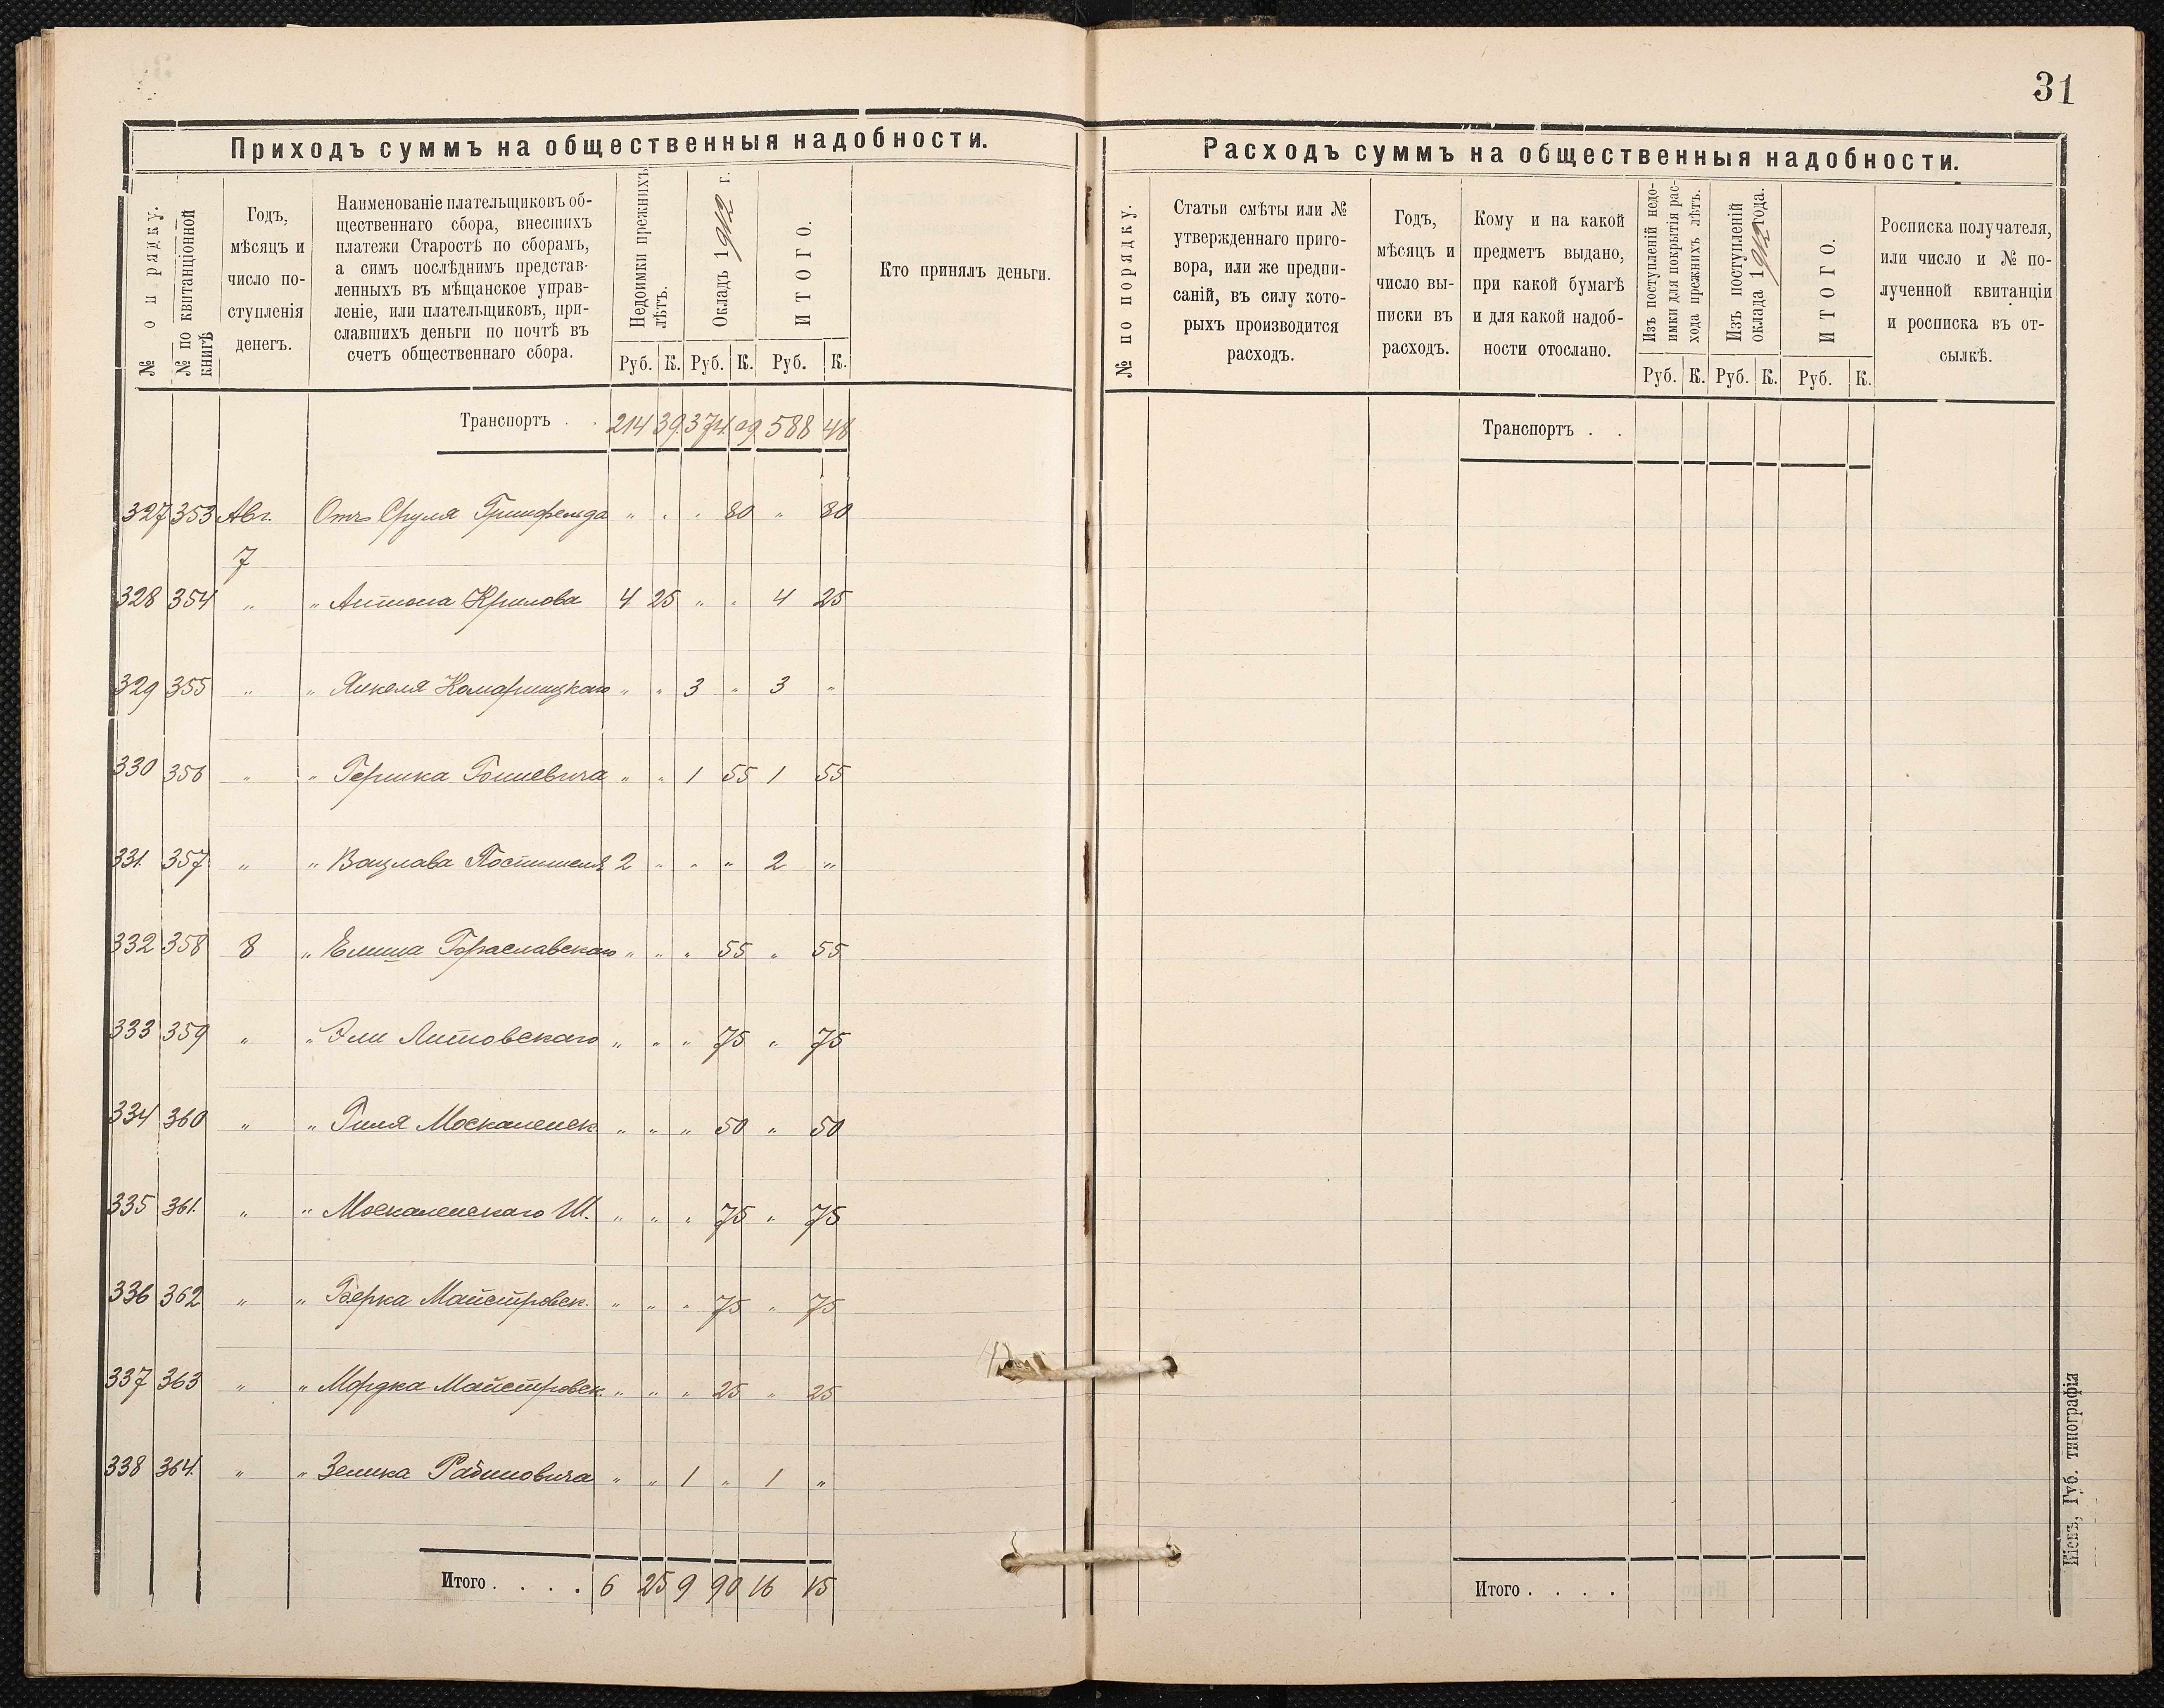 31
Приходъ суммъ на общественныя надобности.
№ по рядку.
№ по квитанціонной
книгѣ
Годъ,
мѣсяцъ и
число по-
ступленія
денегъ.
Наименованіе плательщиковъ об-
щественнаго сбора, внесшихъ
платежи Старостѣ по сборамъ,
а симъ послѣднимъ представ-
ленныхъ въ мѣщанское управ-
леніе, или плательщиковъ, при-
славшихъ деньги по почтѣ въ
счетъ общественнаго сбора.
Недоимки прежнихъ
лѣтъ.
Окладъ 1912 г.
ИТОГО.
Руб. К. Руб. К. Руб. К.
Кто принялъ деньги.
Транспортъ . . 214 39 374 09 588 48
327 353 Авг. Отъ Сруля Гринфельда " . . 80 " 80
7
328 354 " " Антона Крилова 4 25 " . 4 25
329 355 " " Янкеля Комарницкаго " " 3 " 3 "
330 356 " " Гершка Гошневича " " 1 55 1 55
331. 357 " " Вацлава Постишеля 2 " " " 2 "
332 358 8 " Елиша Бораславскаго " " " 55 " 55
333 359 " " Эли Литовскаго " " " 75 " 75
334 360 " " Гиля Москаленск " " " 50 " 50
335 361. " " Москаленскаго Ш. " " " 75 " 75
336 362 " " Берка Майстровск. " " " 75 " 75
337 363 " " Мордка Майстровск. " " " 25 " 25
338 364. " " Зелика Рабиновича " " 1 " 1 "
Итого . . . . 6 25 9 90 16 15
Расходъ суммъ на общественныя надобности.
№ по порядку.
Статьи смѣты или №
утвержденнаго приго-
вора, или же предпи-
саній, въ силу кото-
рыхъ производится
расходъ.
Годъ,
мѣсяцъ и
число вы-
писки въ
расходъ.
Кому и на какой
предметъ выдано,
при какой бумагѣ
и для какой надоб-
ности отослано.
Изъ поступленій недо-
имки для покрытія рас-
хода прежнихъ лѣтъ.
Изъ поступленій
оклада 1912 года.
ИТОГО.
Руб. К. Руб. К. Руб. К.
Росписка получателя,
или число и № по-
лученной квитанціи
и росписка въ от-
сылкѣ.
Транспортъ . .
Итого . . . .
Кіевъ, Губ. типографія